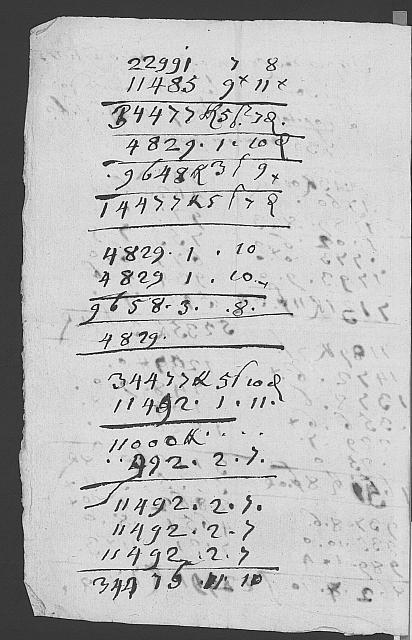 22991 7 8
11485 9 11
34477 R 5 ſ 7 d.
4829. 1. 10 d
9648 R 3 ſ 9
14477 R 5 ſ 7 d
4829. 1. 10
4829 1. 10
9658. 3. .8.
4829.
34477 R 5 ſ 10 d
11492. 1. 11.
11000 R
992. 2. 7.
11492. 2. 7.
11492. 2. 7
11492. 2. 7
11. 10